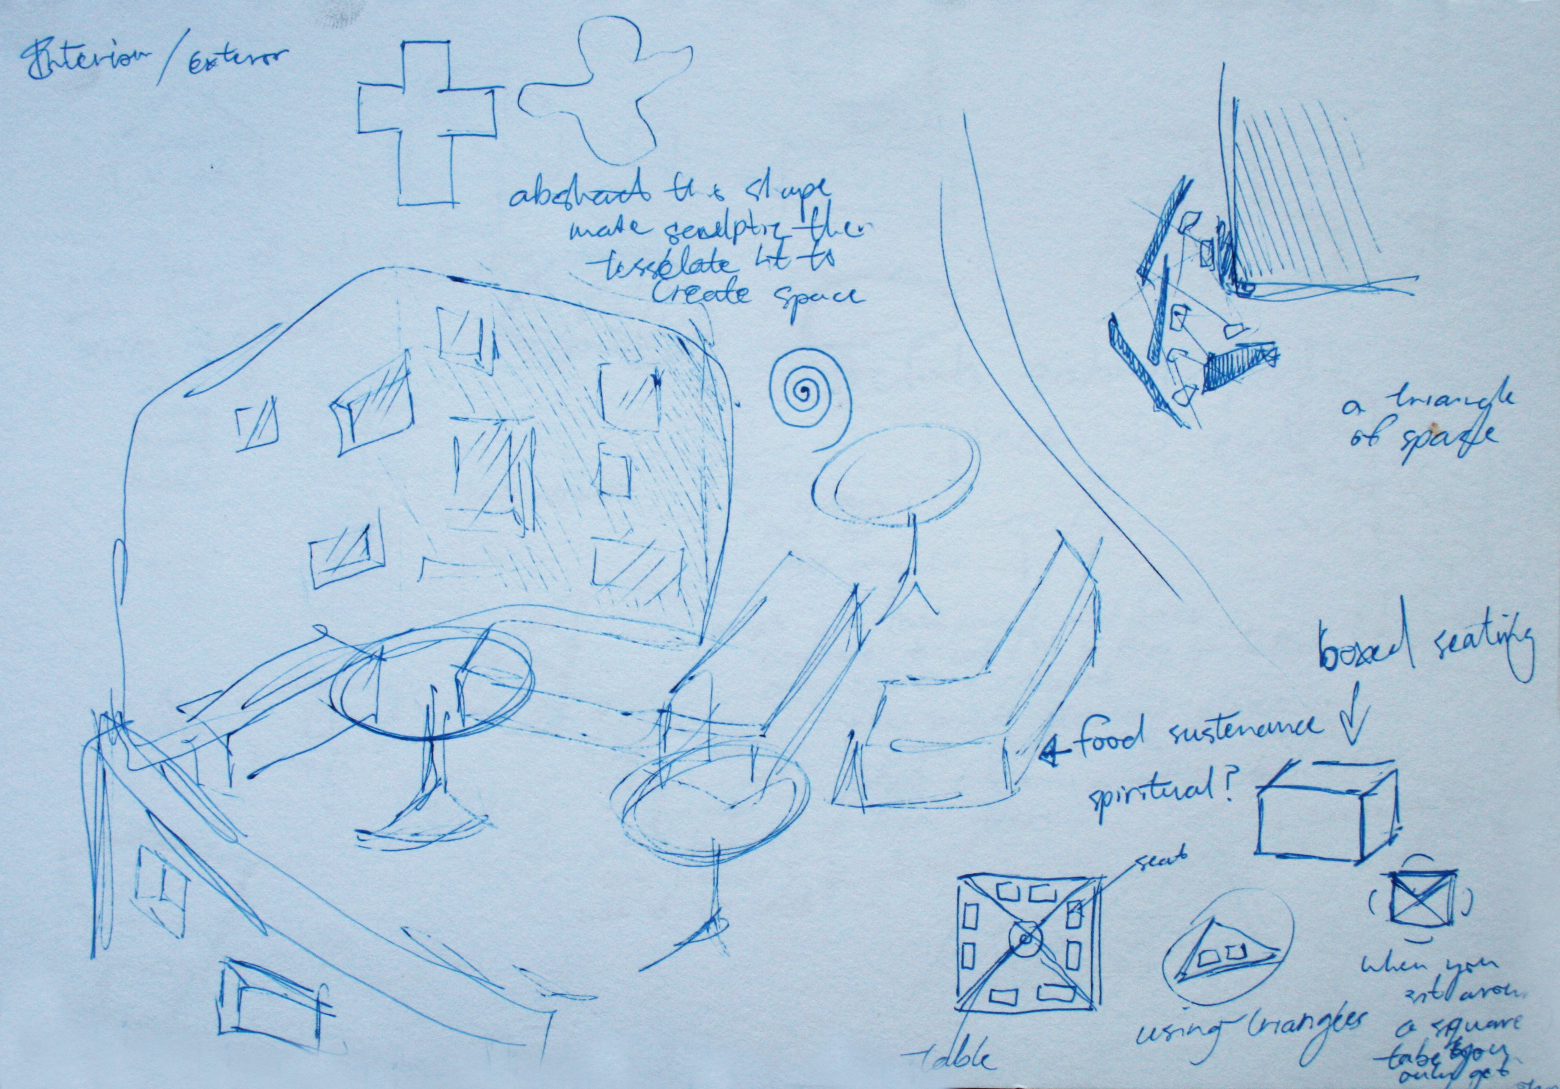 Interior / exterior
abstract this shape
make sculptre then
tesselate it to
create space
a triangle
of space
boxed seating
food sustenance
spiritual?
seat
table
using triangles
when you
sit aroun
a square
table you
only get